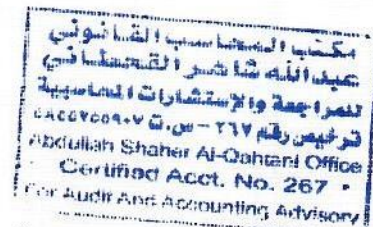 مكتب المحاسب القانوني
عبدالله شاهر القحطاني
للمراجعة والإستشارات المحاسبية
ترخيص رقم ٢٦٧ - س.ت
Abdullah Shaher Al-Qahtani Office
• Certified Acct. No. 267 •
For Audit And Accounting Advisory